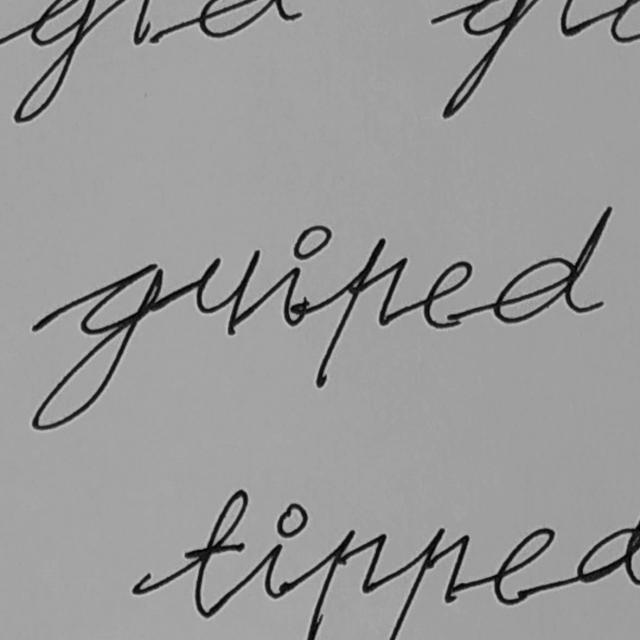 guiped
tipped